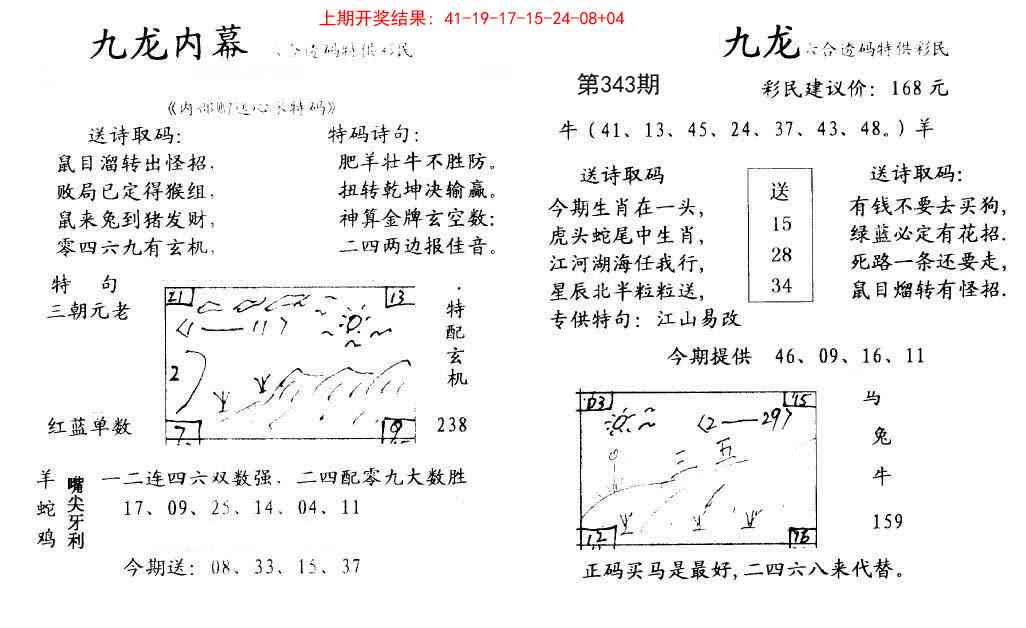 上期开奖结果：41-19-17-15-24-08+04
九龙内幕
合透码特供彩民
送诗取码：
鼠目溜转出怪招，
败局已定得猴组，
鼠来兔到猪发财，
零四六九有玄机，
特码诗句：
肥羊壮牛不胜防。
扭转乾坤决输赢。
神算金牌玄空数：
二四两边报佳音。
特 句
三朝元老
红蓝单数
21
13
〈1——11〉
2
7
9
特
配
玄
机
238
羊
蛇
鸡
嘴尖牙利
一二连四六双数强．二四配零九大数胜
17、09、25、14、04、11
今期送：08、33、15、37
九龙六合透码特供彩民
第343期
彩民建议价：168元
牛（41、13、45、24、37、43、48。）羊
送诗取码
今期生肖在一头，
虎头蛇尾中生肖，
江河湖海任我行，
星辰北半粒粒送，
专供特句：江山易改
送
15
28
34
送诗取码：
有钱不要去买狗，
绿蓝必定有花招．
死路一条还要走，
鼠目熘转有怪招．
今期提供 46、09、16、11
03
15
〈2——29〉
三 五
12
马
兔
牛
159
正码买马是最好，二四六八来代替。